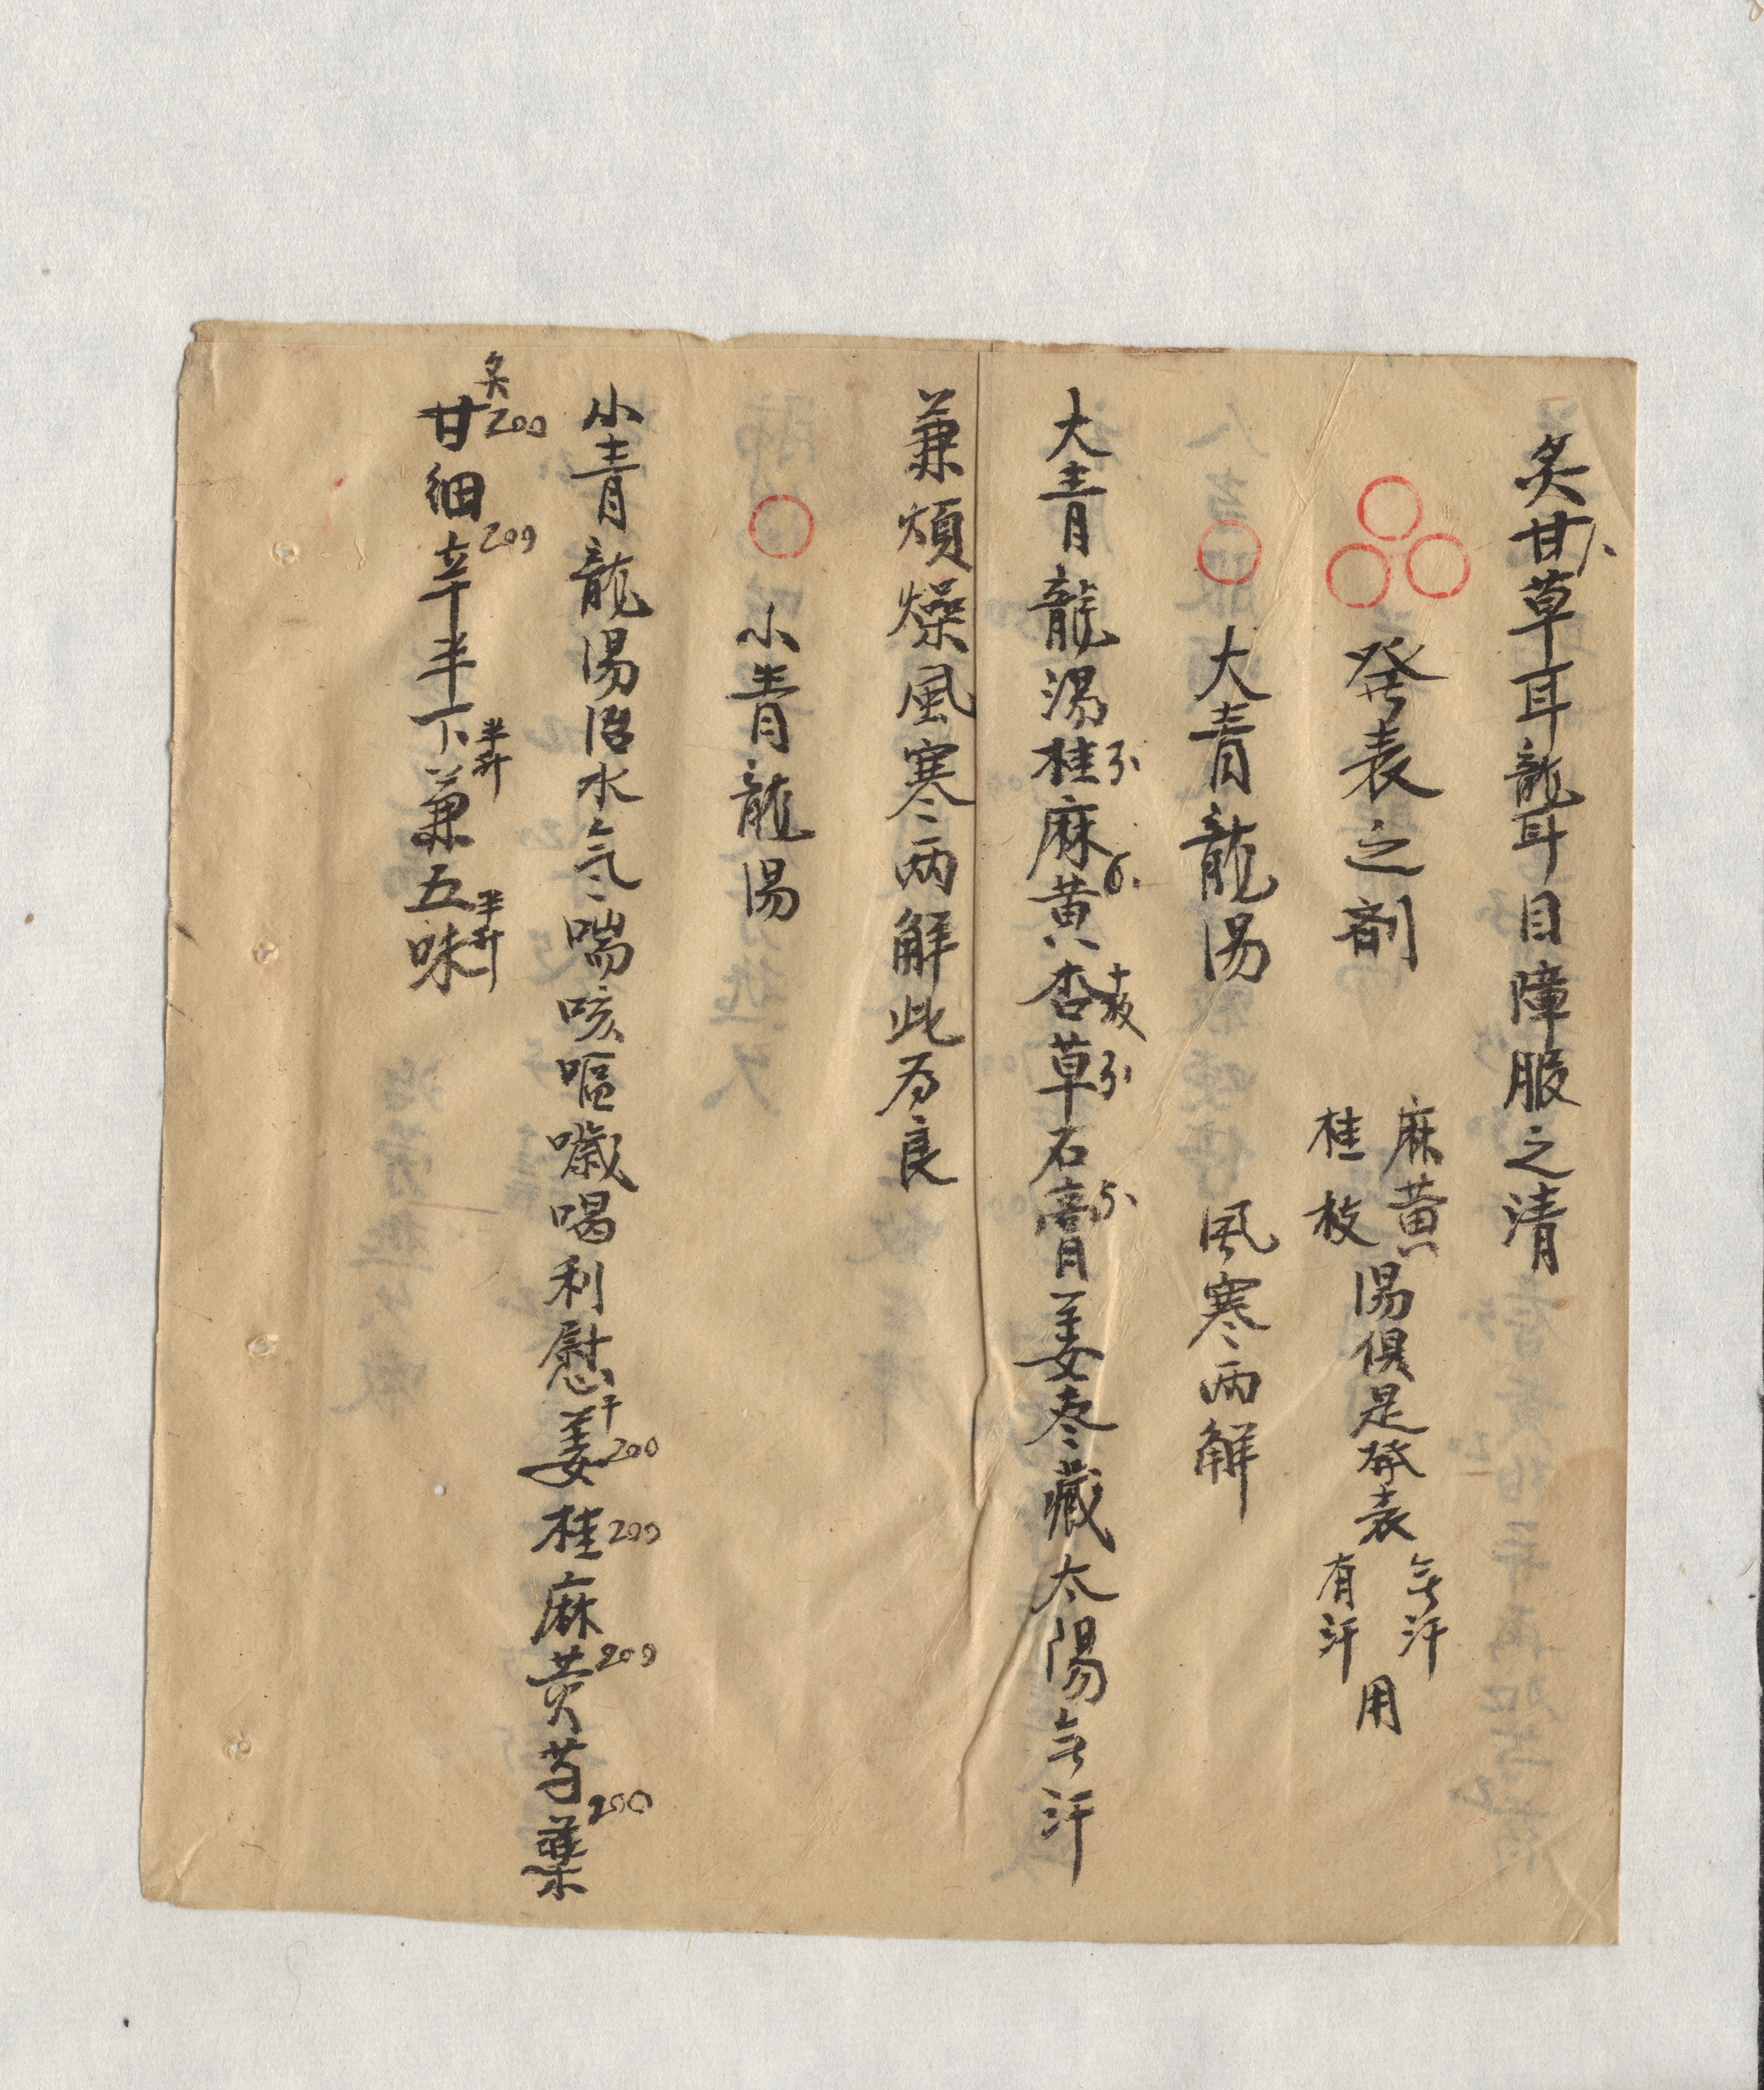 炙甘草耳聾耳目障服之清
發表之剤
麻黄
桂枝
湯俱是發表
無汗
有汗
用
大青龍湯 風寒兩解
大青龍湯桂麻黄杏草石膏姜枣藏太陽無汗
兼煩燥風寒兩解此为良
小青龍湯
小青龍湯治水氣喘咳嘔噦喝利慰姜桂麻黄芍葉
干 200 200 200 200
甘細辛半下兼五味
炙 200 200 半升 半升